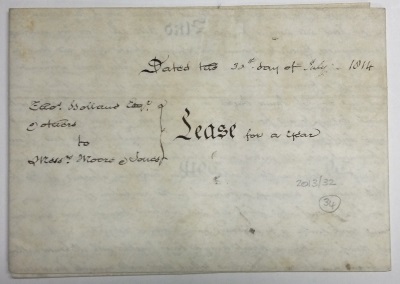 Dated the day of July 1814
Thos. Holland Esqr.
& others
to
Messrs. Moore & Jones
Lease for a Year
2013/32
34